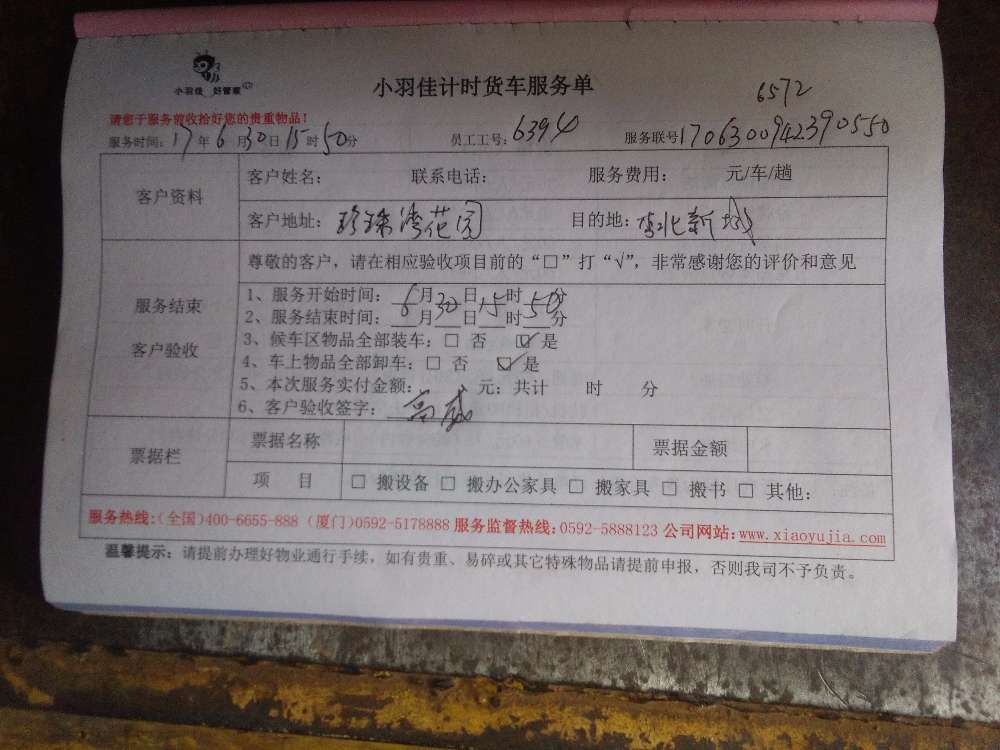 小羽佳 好管家
小羽佳计时货车服务单
6572
请您于服务前收拾好您的贵重物品！
服务时间：17年6月30日15时50分 员工工号：6394 服务联号1706300942390550
客户资料
客户姓名： 联系电话： 服务费用： 元/车/趟
客户地址：珍珠湾花园 目的地：李北新城
服务结束
客户验收
尊敬的客户，请在相应验收项目前的“□”打“√”，非常感谢您的评价和意见
1、服务开始时间：6月30日15时50分
2、服务结束时间：___月___日___时___分
3、候车区物品全部装车：□ 否 ☑ 是
4、车上物品全部卸车：□ 否 ☑ 是
5、本次服务实付金额： 元；共计 时 分
6、客户验收签字：高威
票据栏
票据名称 票据金额
项 目 □ 搬设备 □ 搬办公家具 □ 搬家具 □ 搬书 □ 其他：
服务热线：(全国)400-6655-888 (厦门)0592-5178888 服务监督热线：0592-5888123 公司网站：www.xiaoyujia.com
温馨提示：请提前办理好物业通行手续，如有贵重、易碎或其它特殊物品请提前申报，否则我司不予负责。